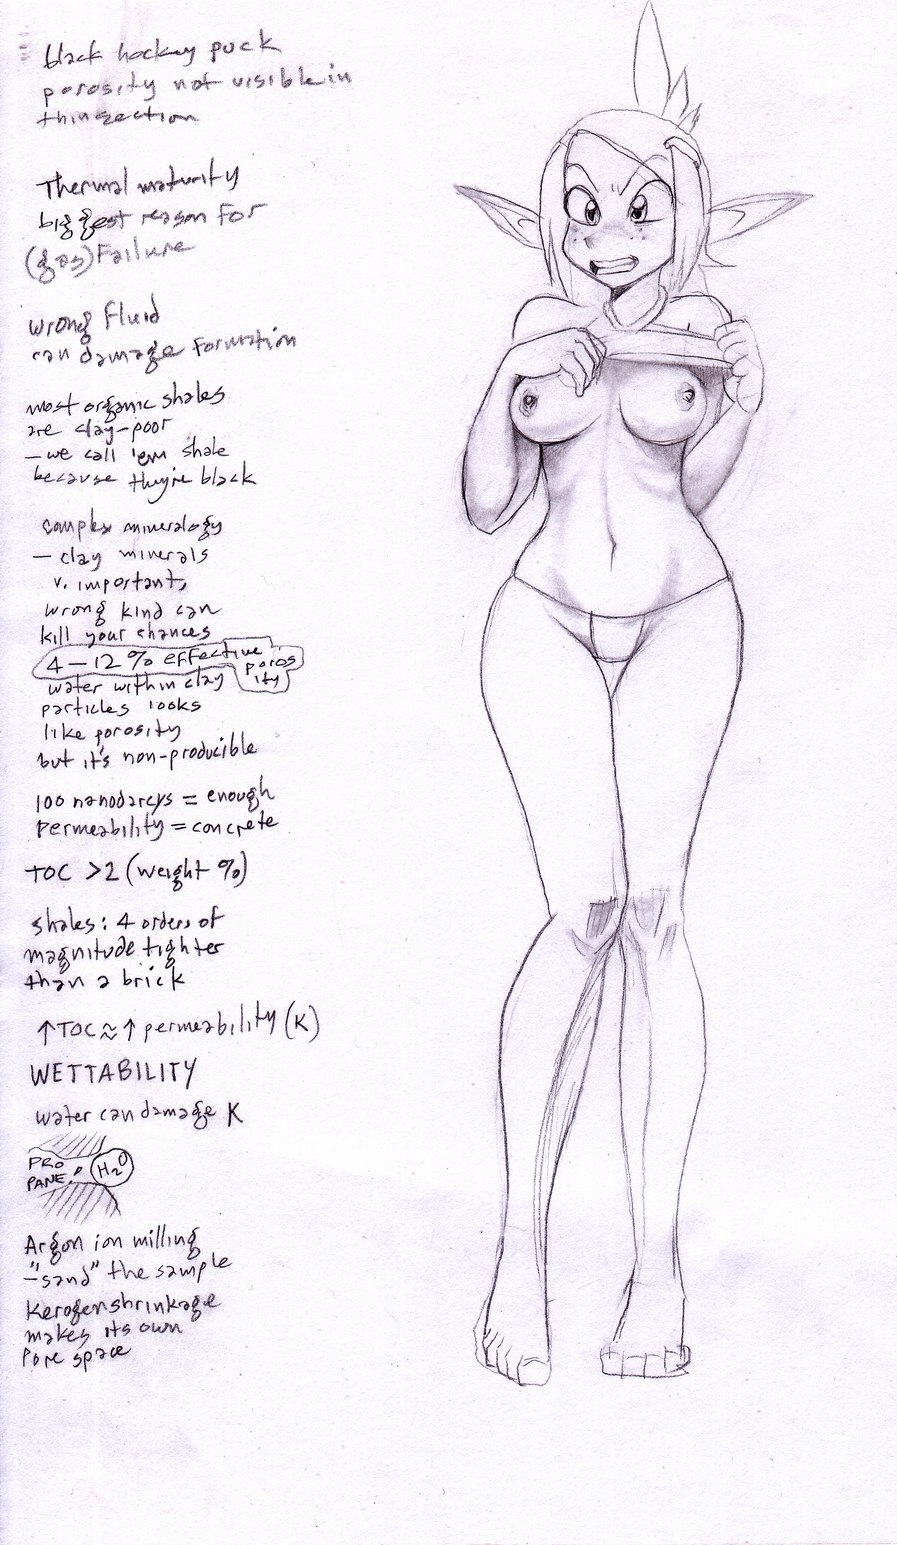 black hockey puck
porosity not visible in
thin section
Thermal maturity
biggest reason for
(gas) Failure
wrong fluid
can damage formation
most organic shales
are clay-poor
- we call 'em shale
because they're black
complex mineralogy
- clay minerals
v. important,
wrong kind can
kill your chances
4-12% effective
porosity
water within clay
particles looks
like porosity
but it's non-producible
100 nanodarcys = enough
permeability = concrete
TOC >2 (weight %)
shales: 4 orders of
magnitude tighter
than a brick
↑TOC ≈ ↑ permeability (K)
WETTABILITY
water can damage K
PRO
PANE!
H2O
Argon ion milling
-"sand" the sample
Kerogen shrinkage
makes its own
pore space